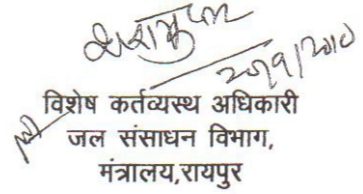 विशेष कर्तव्यस्थ अधिकारी
जल संसाधन विभाग,
मंत्रालय,रायपुर